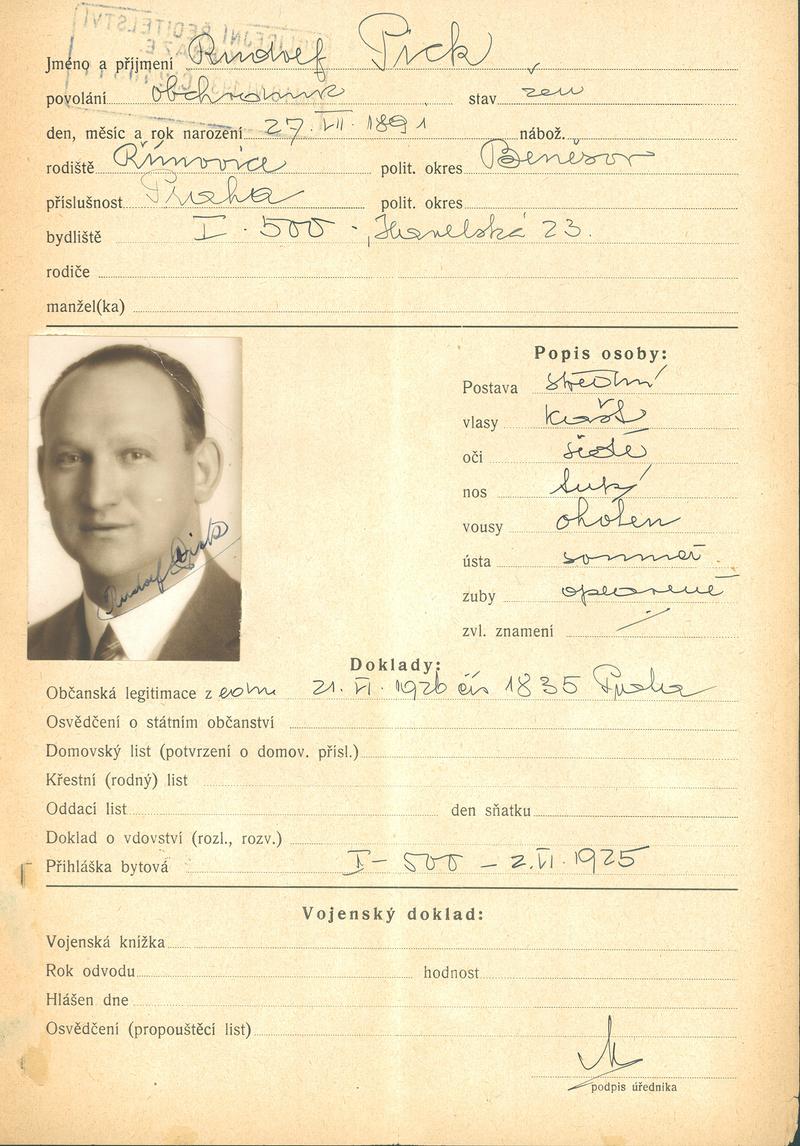 POLICEJNÍ ŘEDITELSTVÍ
Jméno a příjmení Rudolf Pick
povolání obchodník stav žen
den, měsíc a rok narození 27. VII. 1891 nábož.
rodiště Římovice polit. okres Benešov
příslušnost Praha polit. okres
bydliště I - 500 - Havelská 23.
rodiče
manžel(ka)
Popis osoby:
Postava střední
vlasy
oči šedé
nos
vousy oholen
ústa souměr
zuby opravené
zvl. znamení /
Rudolf Pick
Doklady:
Občanská legitimace z 21. VI. 1926 čís 1835 Praha
Osvědčení o státním občanství
Domovský list (potvrzení o domov. přísl.)
Křestní (rodný) list
Oddací list den sňatku
Doklad o vdovství (rozl., rozv.)
Přihláška bytová I - 500 - 2. VI. 1925
Vojenský doklad:
Vojenská knížka
Rok odvodu hodnost
Hlášen dne
Osvědčení (propouštěcí list)
podpis úředníka